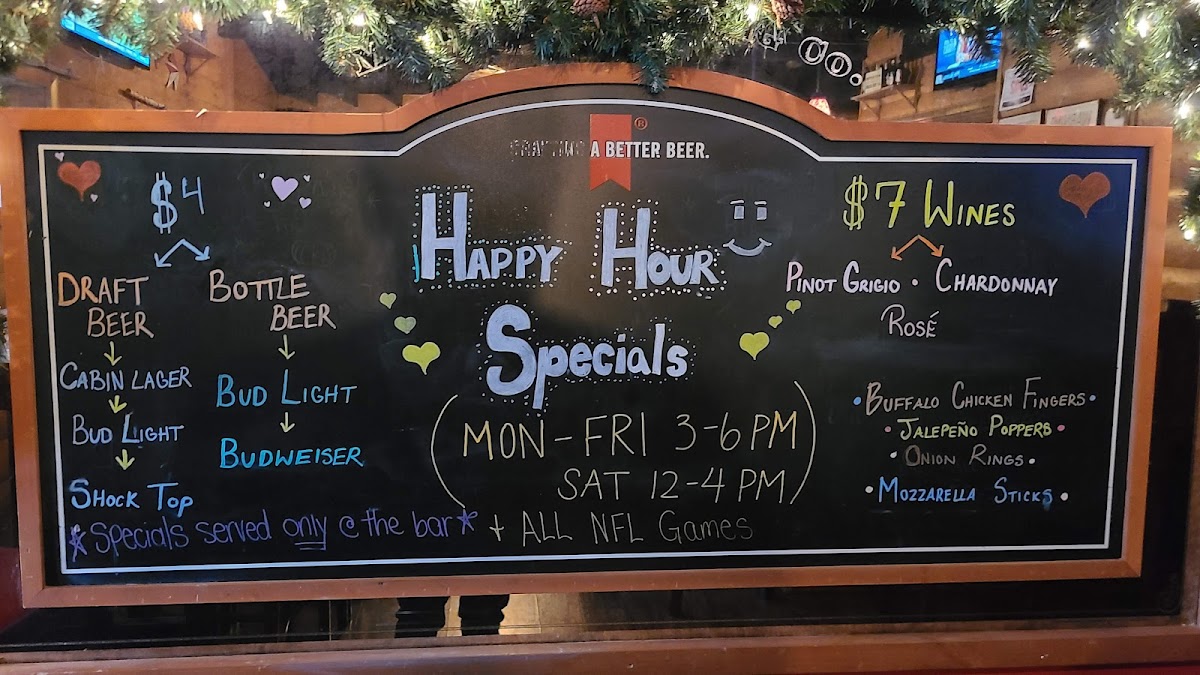 CRAFTING A BETTER BEER.
®
$4
DRAFT
BEER
CABIN LAGER
BUD LIGHT
SHOCK TOP
BOTTLE
BEER
BUD LIGHT
BUDWEISER
HAPPY HOUR
Specials
(MON-FRI 3-6 PM
SAT 12-4 PM)
$7 WINES
PINOT GRIGIO • CHARDONNAY
ROSÉ
•BUFFALO CHICKEN FINGERS•
•JALEPEÑO POPPERS•
•ONION RINGS•
•MOZZARELLA STICKS•
*Specials served only @ the bar* + ALL NFL Games